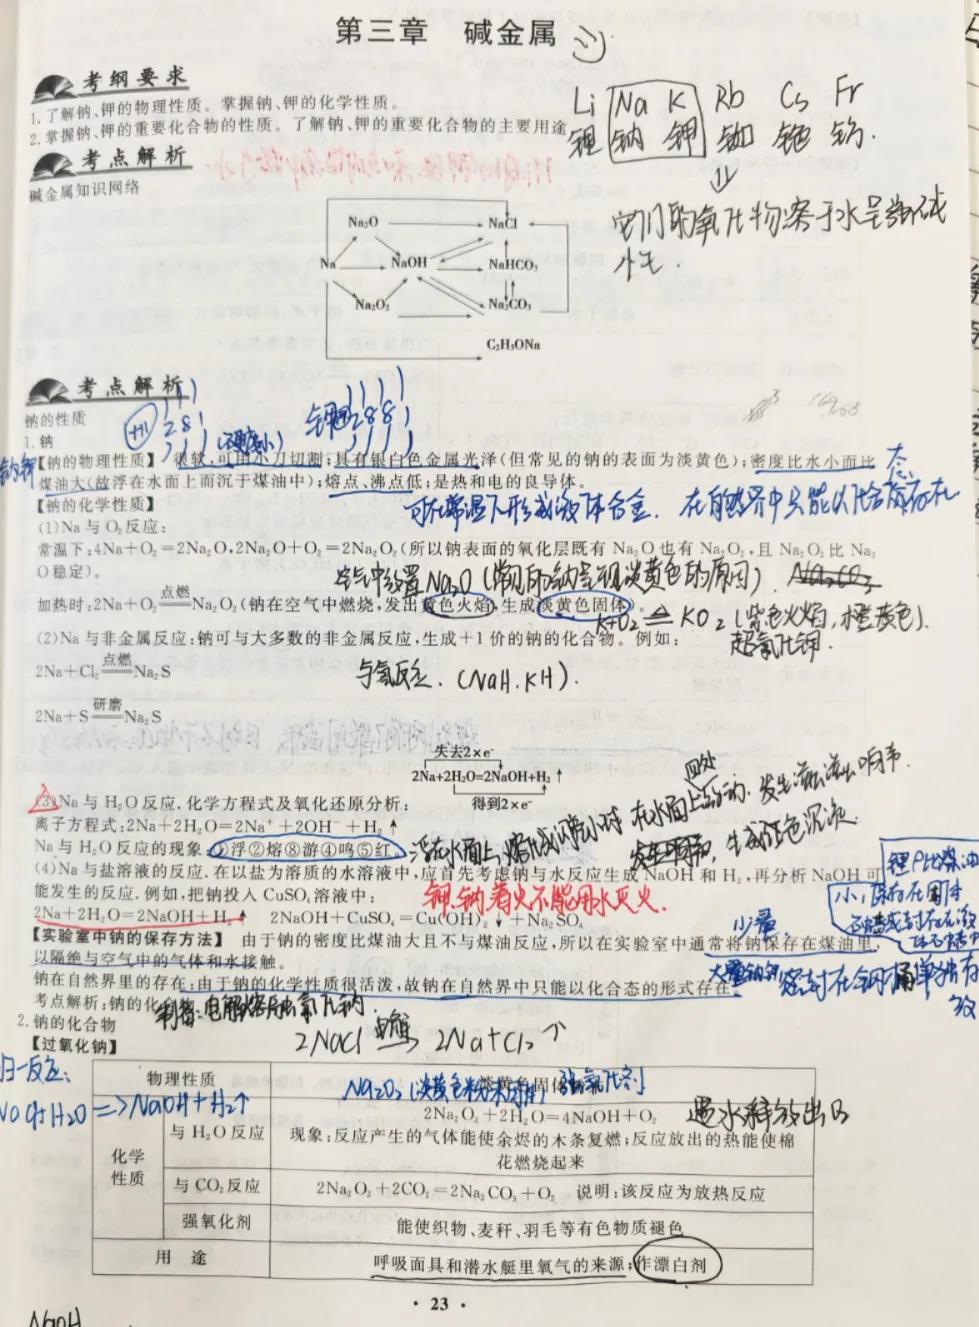 第三章 碱金属
考纲要求
1.了解钠、钾的物理性质。掌握钠、钾的化学性质。
2.掌握钠、钾的重要化合物的性质。了解钠、钾的重要化合物的主要用途
Li Na K Rb Cs Fr
锂 钠 钾 铷 铯 钫.
考点解析
碱金属知识网络
它们的氧化物溶于水呈强碱
性.
Na₂O NaCl
Na NaOH NaHCO₃
Na₂O₂ Na₂CO₃
C₂H₅ONa
考点解析
钠的性质
+11 2 8 1
2 8 8 1
1.钠
【钠的物理性质】 很软,可用小刀切割;具有银白色金属光泽(但常见的钠的表面为淡黄色);密度比水小而比
煤油大(故浮在水面上而沉于煤油中);熔点、沸点低;是热和电的良导体。
可在常温下形成液体合金. 在自然界中只能以化合态存在
【钠的化学性质】
(1)Na与O₂反应:
常温下:4Na+O₂=2Na₂O,2Na₂O+O₂=2Na₂O₂(所以钠表面的氧化层既有Na₂O也有Na₂O₂,且Na₂O₂比Na₂
O稳定)。
空气中放置Na₂O(常见的钠呈现淡黄色的原因)
加热时:2Na+O₂点燃Na₂O₂(钠在空气中燃烧,发出黄色火焰,生成淡黄色固体)。
K+O₂ △ KO₂(紫色火焰,橙黄色).
超氧化钾.
(2)Na与非金属反应:钠可与大多数的非金属反应,生成+1价的钠的化合物。例如:
2Na+Cl₂点燃Na₂S
与氢反应.(NaH.KH).
2Na+S研磨Na₂S
失去2×e⁻
2Na+2H₂O=2NaOH+H₂↑
得到2×e⁻
(3)Na与H₂O反应.化学方程式及氧化还原分析:
离子方程式:2Na+2H₂O=2Na⁺+2OH⁻+H₂↑
Na与H₂O反应的现象:①浮②熔⑧游④鸣⑤红。
浮在水面上,熔化成闪亮小球 在水面上四处游动.发生滋滋响声.
生成红色沉淀.
(4)Na与盐溶液的反应.在以盐为溶质的水溶液中,应首先考虑钠与水反应生成NaOH和H₂,再分析NaOH可
能发生的反应.例如,把钠投入CuSO₄溶液中:
钾.钠.着火不能用水灭火.
2Na+2H₂O=2NaOH+H₂↑ 2NaOH+CuSO₄=Cu(OH)₂↓+Na₂SO₄
【实验室中钠的保存方法】 由于钠的密度比煤油大且不与煤油反应,所以在实验室中通常将钠保存在煤油里,
以隔绝与空气中的气体和水接触。
少量
锂P比煤油
小,保存在固体
钠在自然界里的存在:由于钠的化学性质很活泼,故钠在自然界中只能以化合态的形式存在
考点解析:钠的化
制备:电解熔融氯化钠.
2NaCl 电解 2Na+Cl₂↑
2.钠的化合物
【过氧化钠】
归一反应:
Na+H₂O=>NaOH+H₂↑
物理性质 淡黄色固体
Na₂O₂(淡黄色粉末 强氧化剂
化学性质
与H₂O反应 2Na₂O₂+2H₂O=4NaOH+O₂
现象:反应产生的气体能使余烬的木条复燃;反应放出的热能使棉
花燃烧起来
遇水释放出O
与CO₂反应 2Na₂O₂+2CO₂=2Na₂CO₃+O₂ 说明:该反应为放热反应
强氧化剂 能使织物、麦秆、羽毛等有色物质褪色
用途 呼吸面具和潜水艇里氧气的来源;作漂白剂
· 23 ·
NaOH